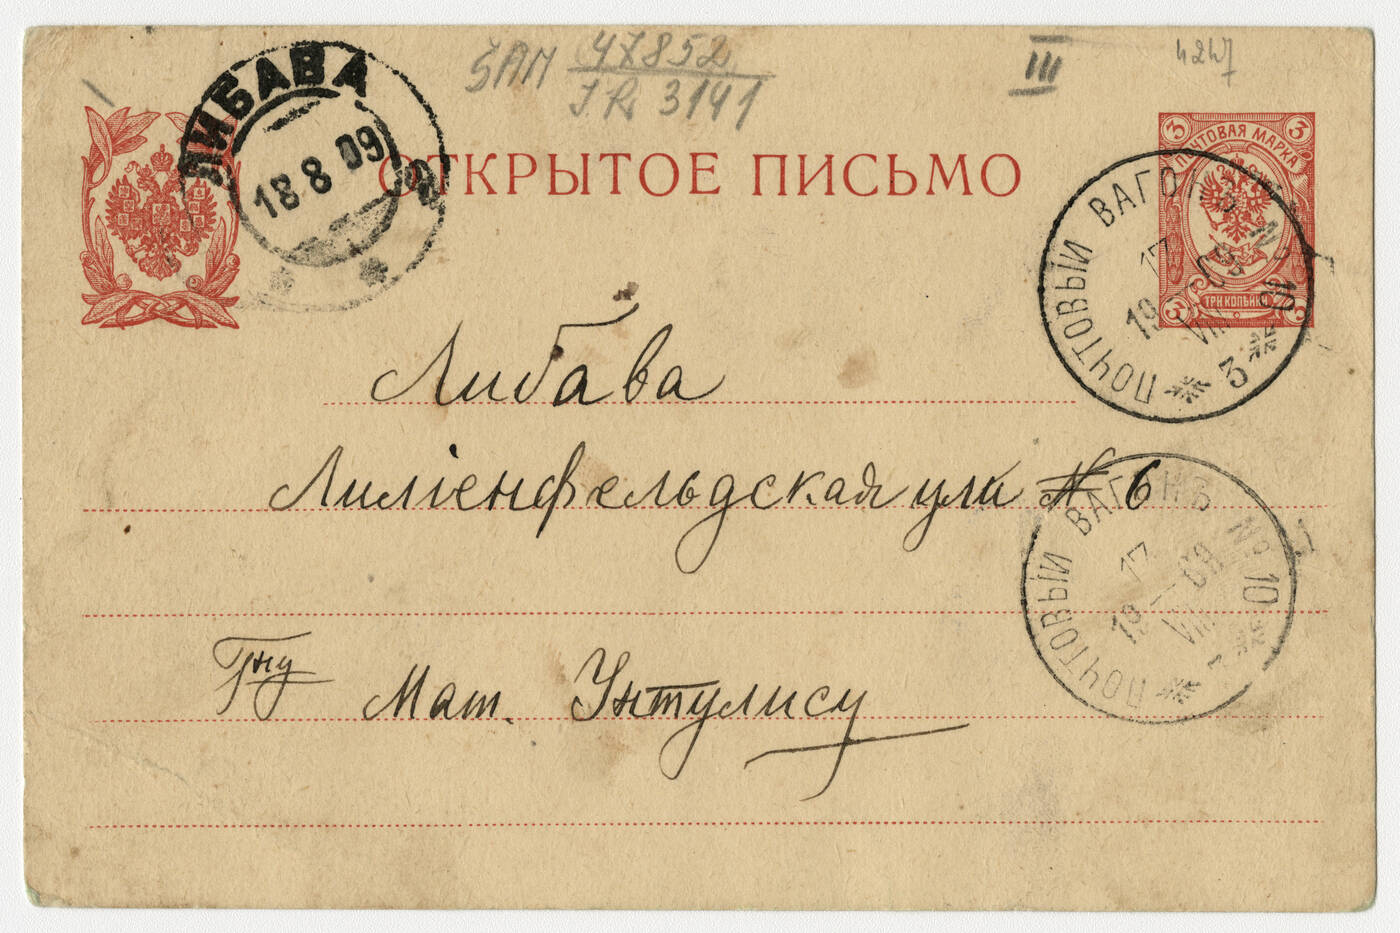 ŠAM 47852
I.R. 3141
III
4247
ЛИБАВА
18 8 09
ОТКРЫТОЕ ПИСЬМО
3 3
ПОЧТОВАЯ МАРКА
ТРИ КОПѢЙКИ
3 3
ПОЧТОВЫЙ ВАГОНЪ № 10
17
19 09
VIII
3
Либава
Лиліенфельдская ули № 6
ПОЧТОВЫЙ ВАГОНЪ № 10
17
19 09
VIII
3
Гну Мат. Унтулису